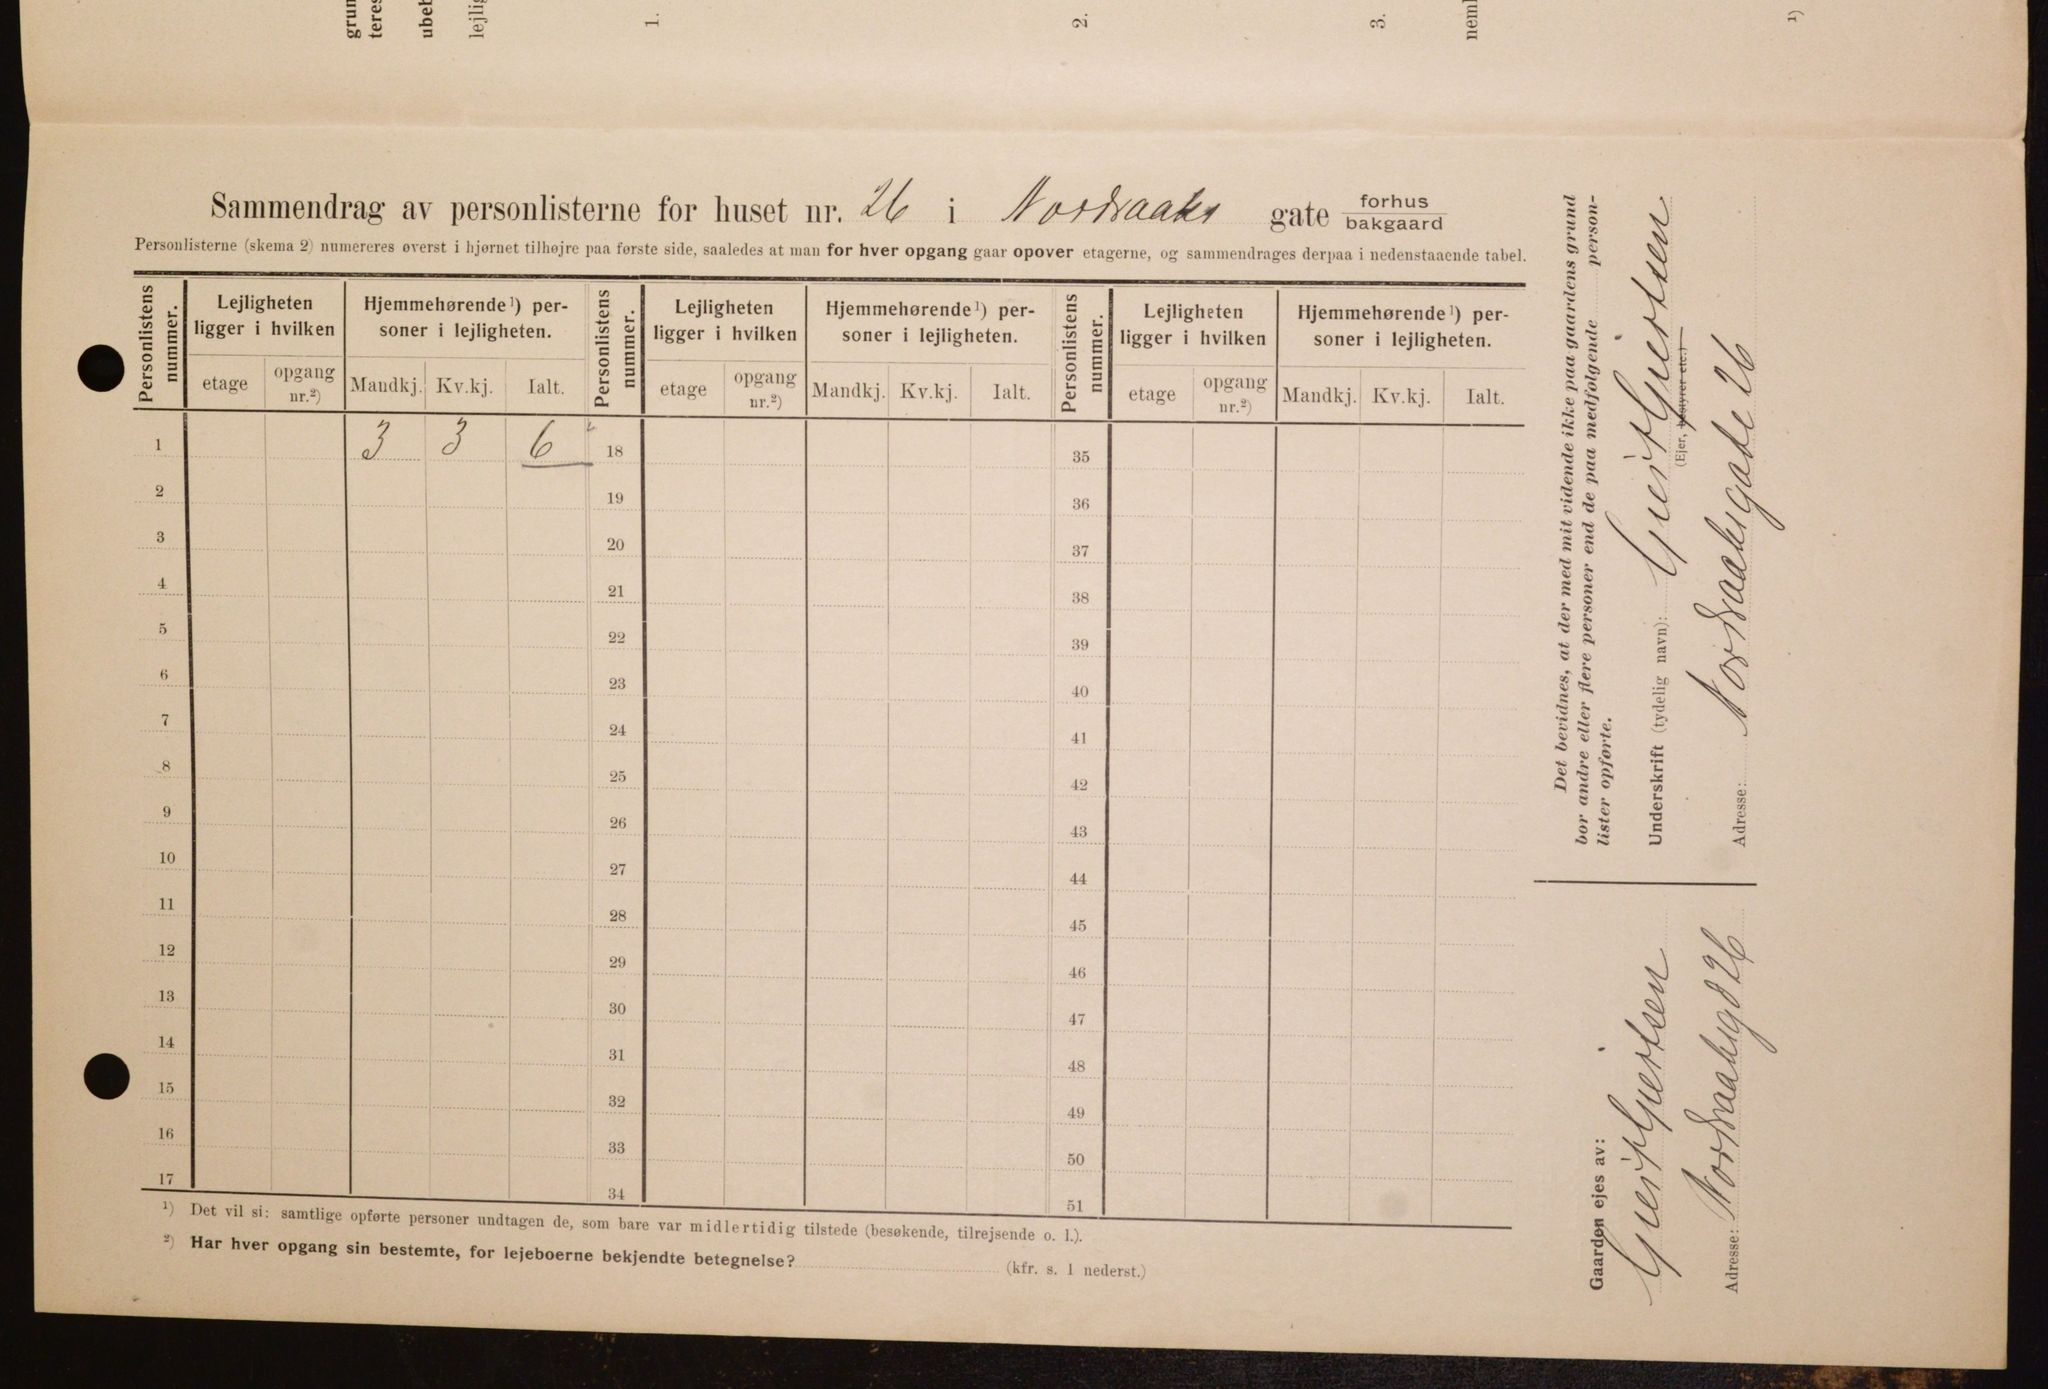 grun
teres
ubeb
lejlig
1.
2.
3.
neml
1)
Sammendrag av personlisterne for huset nr. 26 i Nordraaks gate forhus
bakgaard
Personlisterne (skema 2) numereres øverst i hjørnet tilhøjre paa første side, saaledes at man for hver opgang gaar opover etagerne, og sammendrages derpaa i nedenstaaende tabel.
Personlistens nummer. Lejligheten ligger i hvilken Hjemmehørende 1) personer i lejligheten. Personlistens nummer. Lejligheten ligger i hvilken Hjemmehørende 1) personer i lejligheten. Personlistens nummer. Lejligheten ligger i hvilken Hjemmehørende 1) personer i lejligheten.
etage opgang nr.2) Mandkj. Kv.kj. Ialt. etage opgang nr.2) Mandkj. Kv.kj. Ialt. etage opgang nr.2) Mandkj. Kv.kj. Ialt.
1 3 3 6 18 35
2 19 36
3 20 37
4 21 38
5 22 39
6 23 40
7 24 41
8 25 42
9 26 43
10 27 44
11 28 45
12 29 46
13 30 47
14 31 48
15 32 49
16 33 50
17 34 51
1) Det vil si: samtlige opførte personer undtagen de, som bare var midlertidig tilstede (besøkende, tilrejsende o. l.).
2) Har hver opgang sin bestemte, for lejeboerne bekjendte betegnelse? (kfr. s. 1 nederst.)
Det bevidnes, at der med mit vidende ikke paa gaardens grund
bor andre eller flere personer end de paa medfølgende person-
lister opførte.
Underskrift (tydelig navn):
(Ejer, bestyrer etc.)
Adresse: Nordraaksgate 26
Gaarden ejes av:
Adresse: Nordraaksgd 26